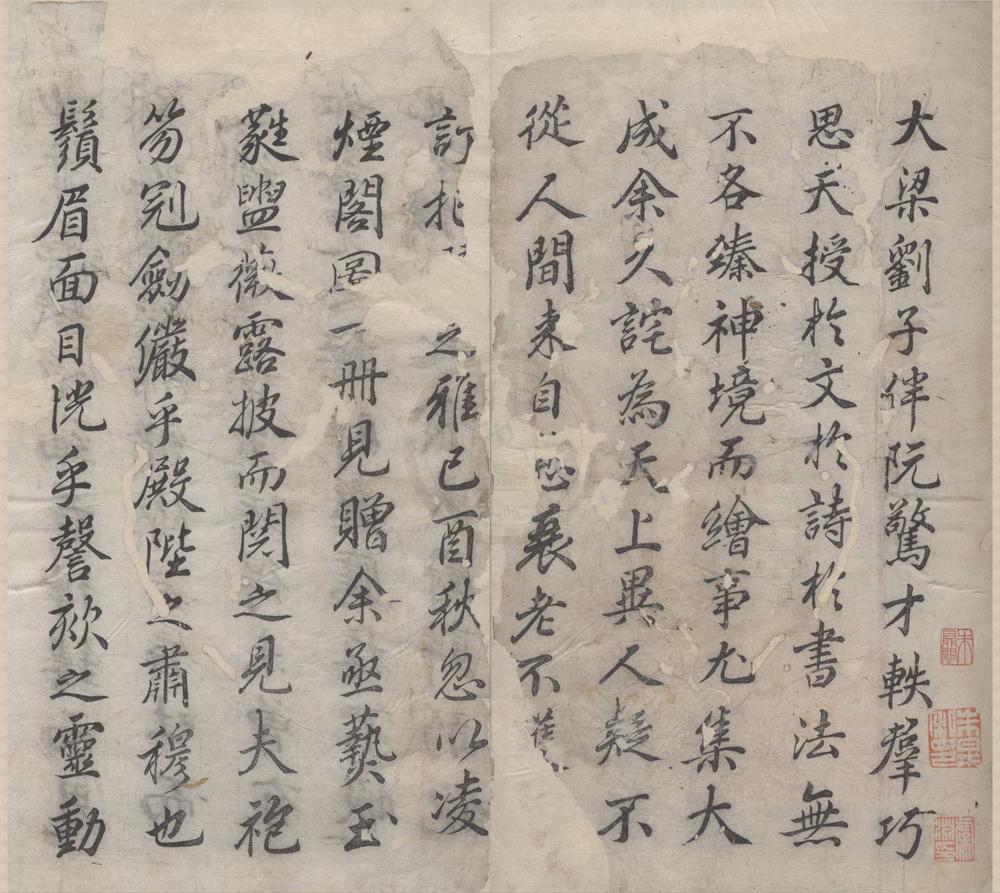 大梁劉子伴阮驚才軼羣巧
思天授於文於詩於書法無
不各臻神境而繪事尤集大
成余久詫為天上異人疑不
從人間来自 衰老不
訂 之雅已酉秋忽以凌
煙閣圖一冊見贈余亟爇玉
蕤盥薇露披而閱之見夫袍
笏冠劍儼乎殿陛之肅穆也
鬚眉面目恍乎謦欬之靈動